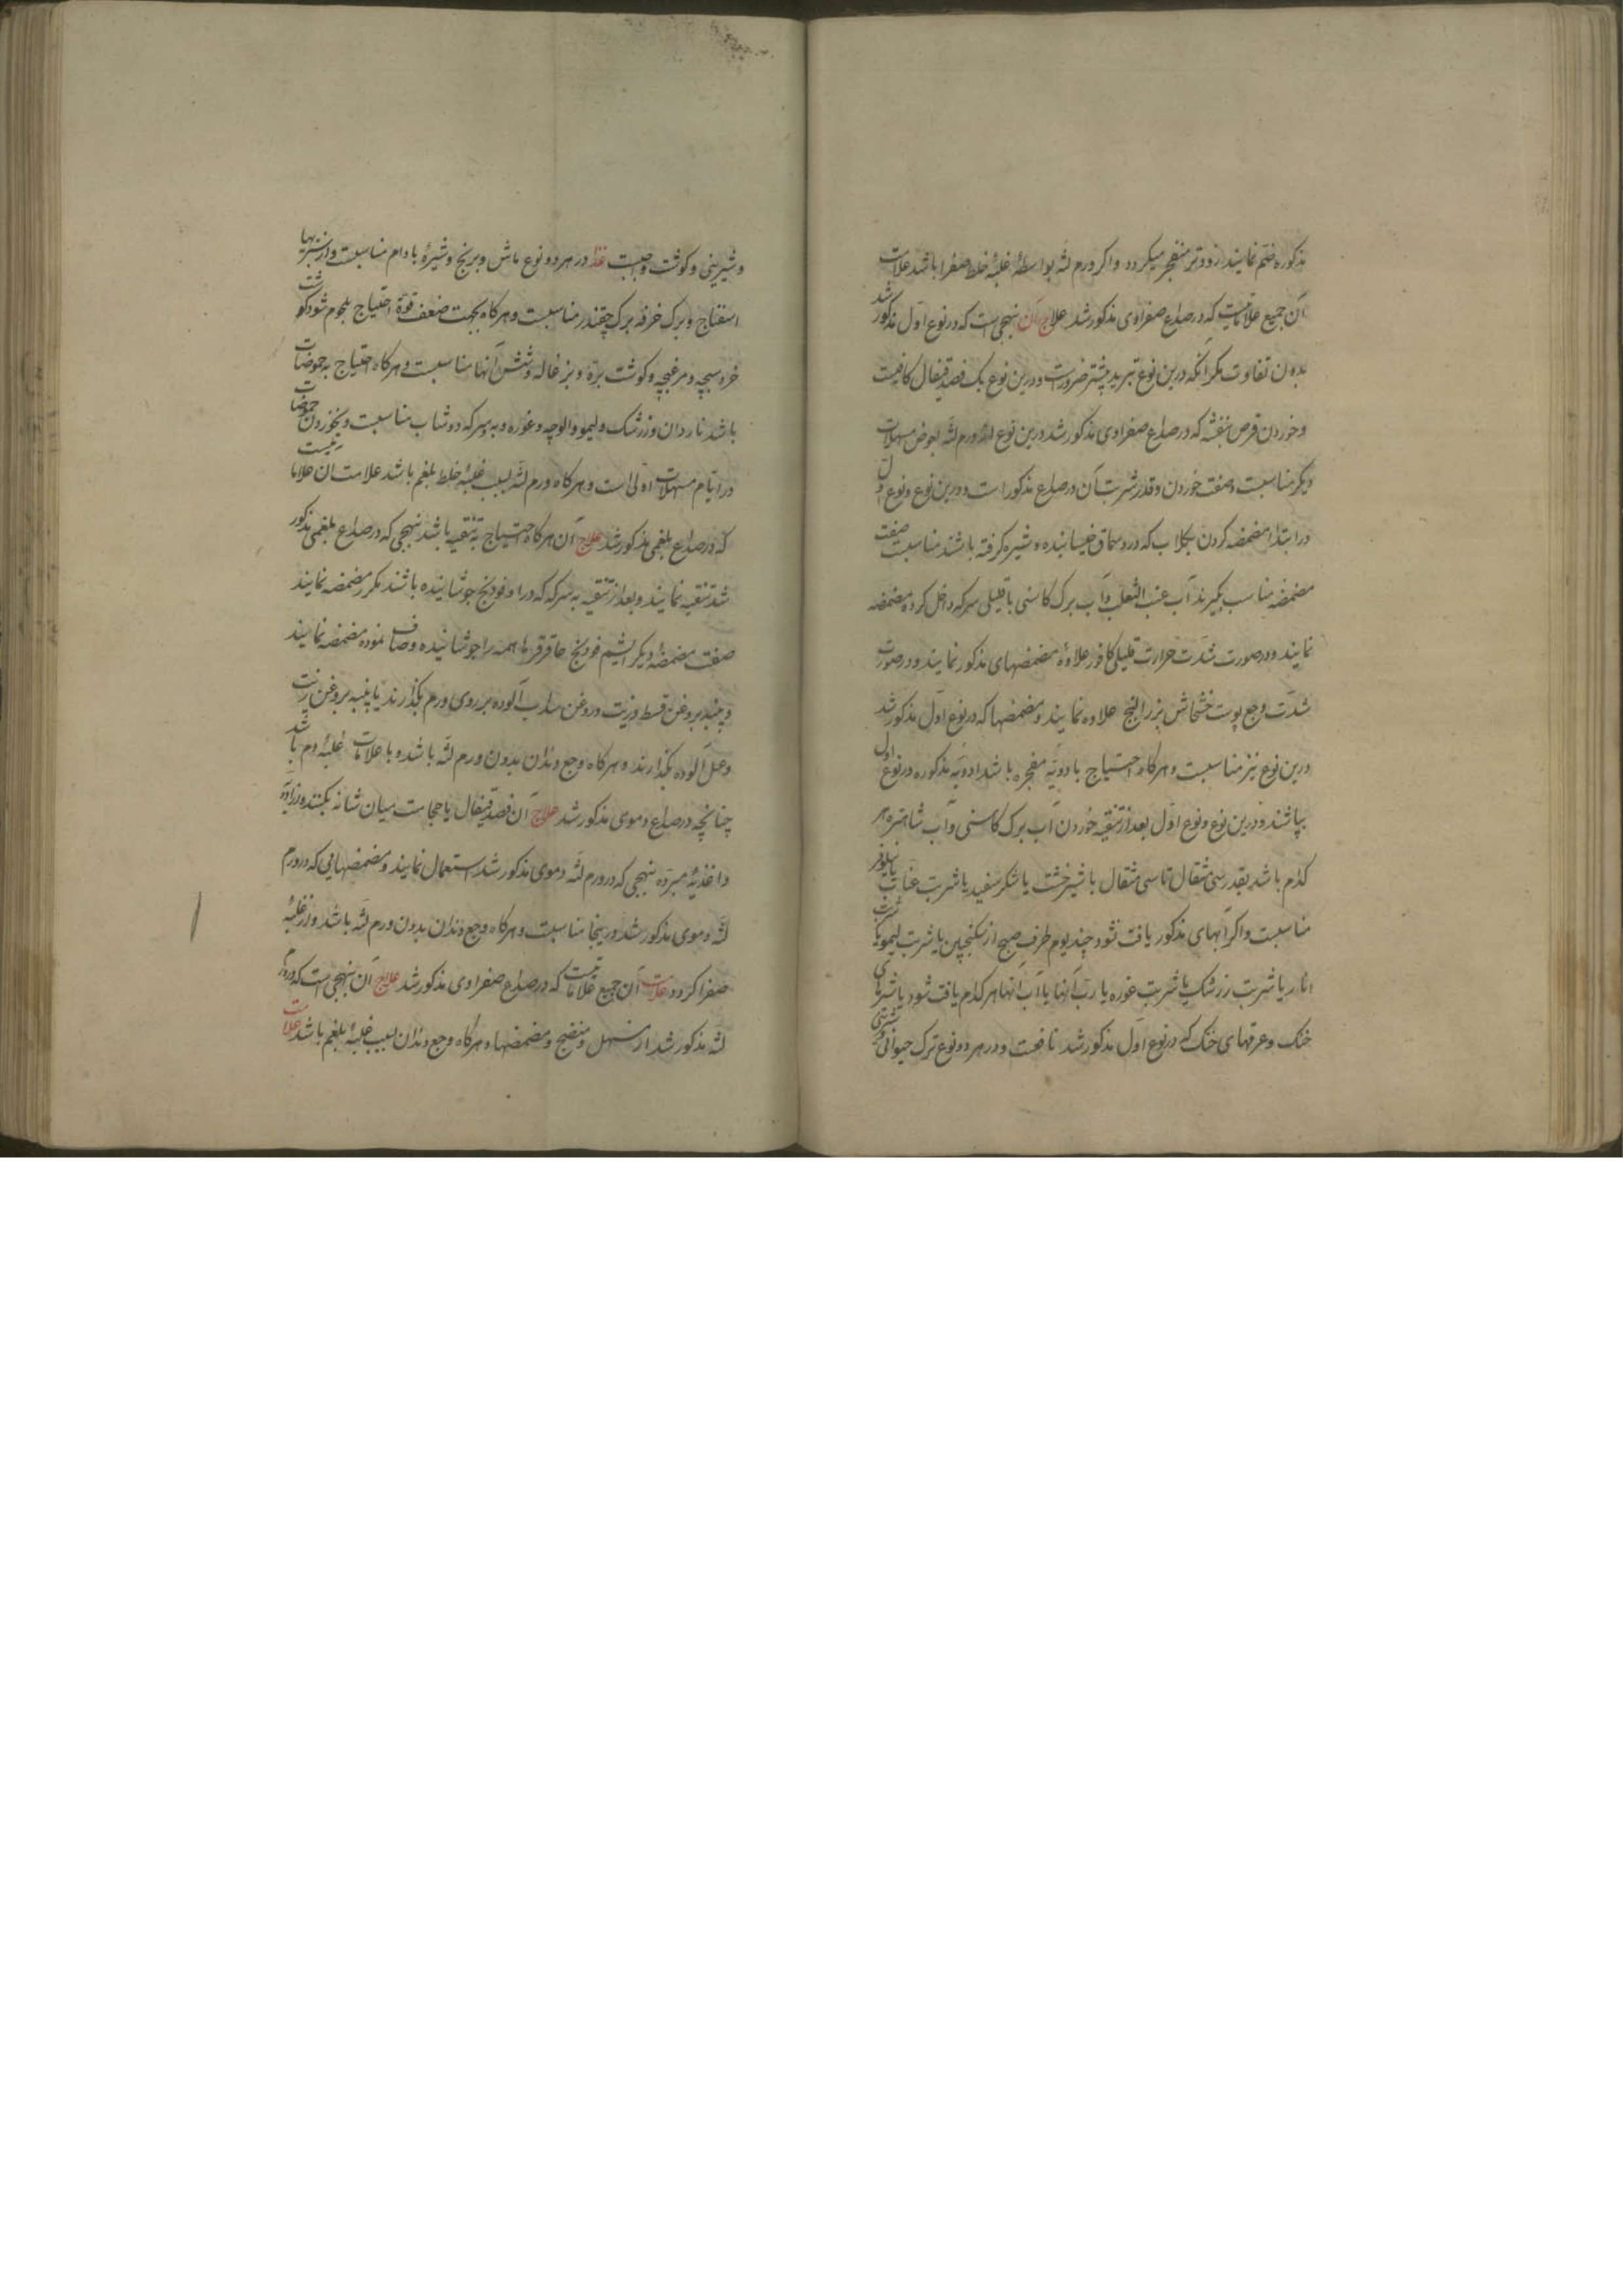 مذکوره ضم نمایند زودتر منفجر میکردد و اکر ورم لثه بواسطهٔ غلبهٔ خلط صفرا باشد علامت
آن جمیع علاماتیست که در صداع صفراوی مذکور شد علاج آن بنهجی است که در نوع اول مذکور شد
بدون تفاوت مکر آنکه درین نوع تبرید بیشتر ضرورست و درین نوع یک فصد قیفال کافیست
و خوردن قرص بنفشه که در صداع صفراوی مذکور شد درین نوع از ورم لثه بعوض مسهلات
دیکر مناسبست و صفت خوردن و قدر شربت آن در صداع مذکور است و درین نوع و نوع اول
در ابتدا مضمضه کردن بکلاب که در و سماق خیسانیده و شیره کرفته باشند مناسبست صفت
مضمضه مناسب بکیرند آب عنب الثعلب و آب برک کاسنی با قلیلی سرکه داخل کرده مضمضه
نمایند و در صورت شدت حرارت قلیلی کافور علاوهٔ مضمضهای مذکور نمایند و در صورت
شدت وجع پوست خشخاش بزر البنج علاوه نمایند و مضمضها که در نوع اول مذکور شد
درین نوع نیز مناسبست و هرکاه احتیاج بادویهٔ مفجره باشد ادویهٔ مذکوره در نوع اول
بپاشند و درین نوع و نوع اول بعد از تنقیه خوردن آب برک کاسنی و آب شاهتره هر
کدام باشد بقدر سی مثقال تا سی مثقال با شیرخشت یا شکر سفید یا شربت عناب یا نیلوفر
مناسبست و اکر آبهای مذکور یافت نشود چند یوم طرف صبح از سکنجبین یا شربت لیمو یا شربت
انار یا شربت زرشک یا شربت غوره یا رب آنها یا آب آنها هر کدام یافت شود یا شیرهای
خنک و عرقهای خنک که در نوع اول مذکور شد نافعست و در هر دو نوع ترک حیوانی
و شیرینی و کوشت واجبست غذا در هر دو نوع ماش و برنج و شیرهٔ بادام مناسبست و از سبزیها
اسفناج و برک خرفه برک چقندر مناسبست و هرکاه بجهت ضعف قوة احتیاج بلحوم شود کوشت
خروسبچه و مرغبچه و کوشت بره و بزغاله و شش آنها مناسبست و هرکاه احتیاج بحموضات
باشد ناردان و زرشک و لیمو و الوچه و غوره و به و سرکه دوشاب مناسبست و نخوردن حموضات
در ایام مسهلات اولی است و هرکاه ورم لثه بسبب غلبهٔ خلط بلغم باشد علامت ان علاماتیست
که در صداع بلغمی مذکور شد علاج آن هرکاه احتیاج به تنقیه باشد بنهجی که در صداع بلغمی مذکور
شد تنقیه نمایند و بعد از تنقیه به سرکه که در او فودنج جوشانیده باشند مکرر مضمضه نمایند
صفت مضمضهٔ دیکر فودنج عاقرقرحا همه را جوشانیده و صاف نموده مضمضه نمایند
و پنبه بروغن قسط و زیت و روغن سداب آلوده بر روی ورم بکذارند یا پنبه بروغن زیت
و عسل آلوده بکذارند و هرکاه وجع دندان بدون ورم لثه باشد و با علامات غلبهٔ دم باشد
چنانچه در صداع دموی مذکور شد علاج آن فصد قیفال یا حجامت میان شانه بکنند و از ادویه
و اغذیهٔ مبرده بنهجی که در ورم لثه دموی مذکور شد استعمال نمایند و مضمضهایی که در ورم
لثه دموی مذکور شد در ینجا مناسبست و هرکاه وجع دندان بدون ورم لثه باشد و از غلبهٔ
صفرا کردد علامت آن جمیع علاماتیست که در صداع صفراوی مذکور شد علاج آن بنهجی است که در ورم
لثه مذکور شد از مسهل و منضج و مضمضها و هرکاه وجع دندان بسبب غلبهٔ بلغم باشد علامت